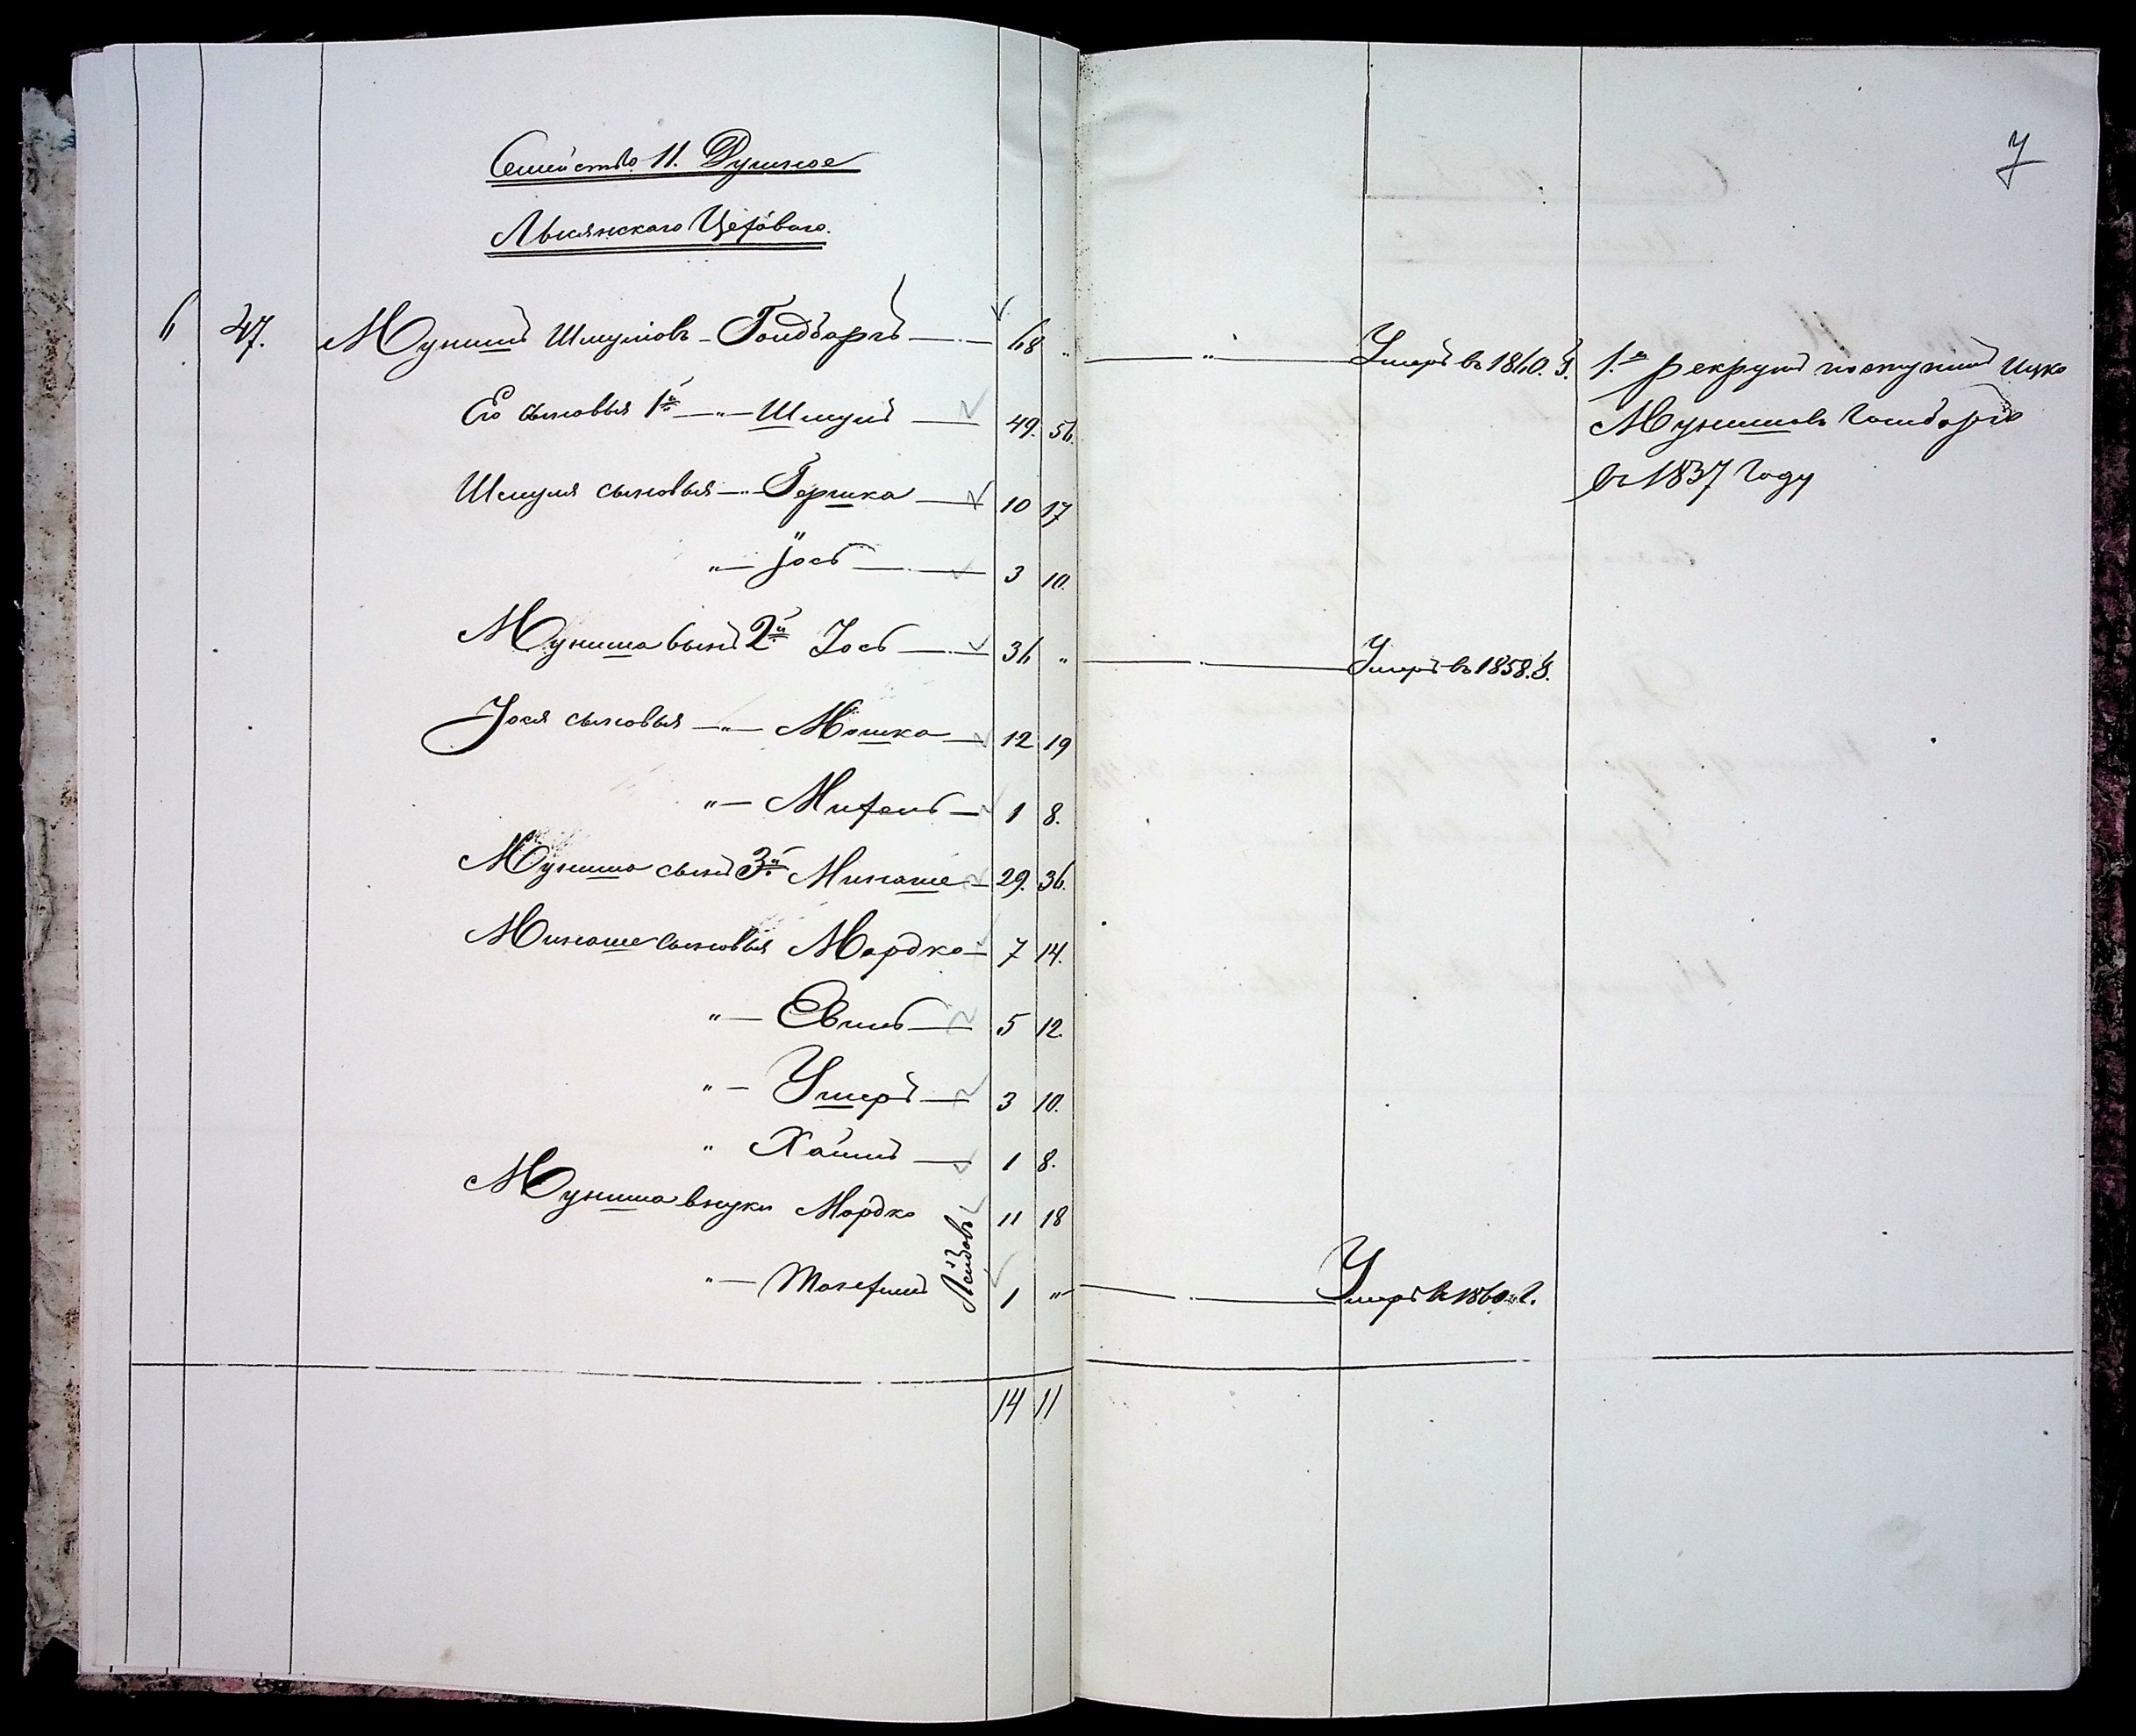 Семейство 11. Душное
Лысянскаго Цеховаго.
7
6 47. Мунишъ Шмулiовъ - Голдбаргъ 68 " " Умеръ въ 1860. г. 1.й рекрутъ поступилъ Ицко
Мунишовъ Голдбаргъ
въ 1837 году
Его сыновья 1й " Шмуль 49. 56.
Шмуля сыновья " Гершка 10 17
" Iось 3 10.
Муниша сынъ 2й Iось 36 " Умеръ въ 1858. г.
Iося сыновья " Мошка 12 19
" Михель 1 8.
Муниша сынъ 3й Минаше 29. 36.
Минаше сыновья Мордко 7 14.
" Евель 5 12.
" Ушеръ 3 10.
" Хаимъ 1 8.
Муниша внуки Мордко 11 18
Лейбовы
" 1 " Умеръ въ 1860 г.
14 11